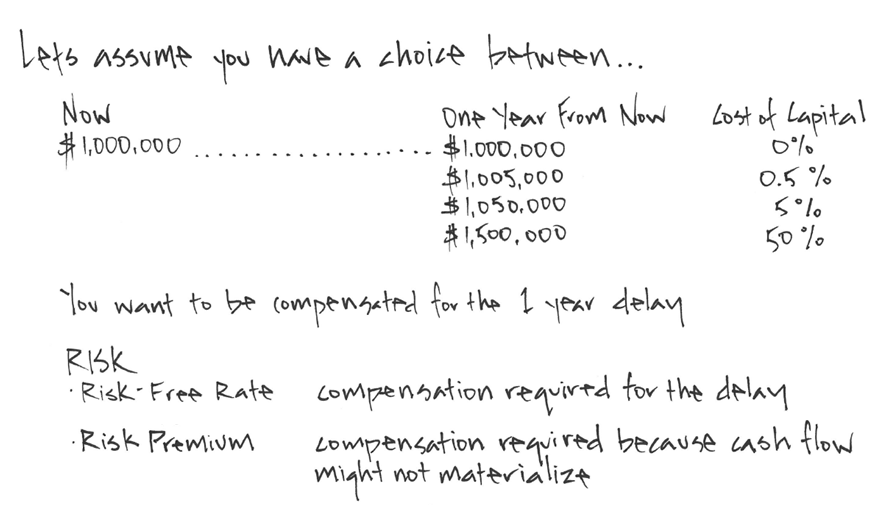 Lets assume you have a choice between...
Now One Year From Now Cost of Capital
$1,000,000 .................... $1.000,000 0%
$1,005,000 0.5%
$1,050,000 5%
$1,500,000 50%
You want to be compensated for the 1 year delay
RISK
· Risk-Free Rate compensation required for the delay
· Risk Premium compensation required because cash flow
might not materialize